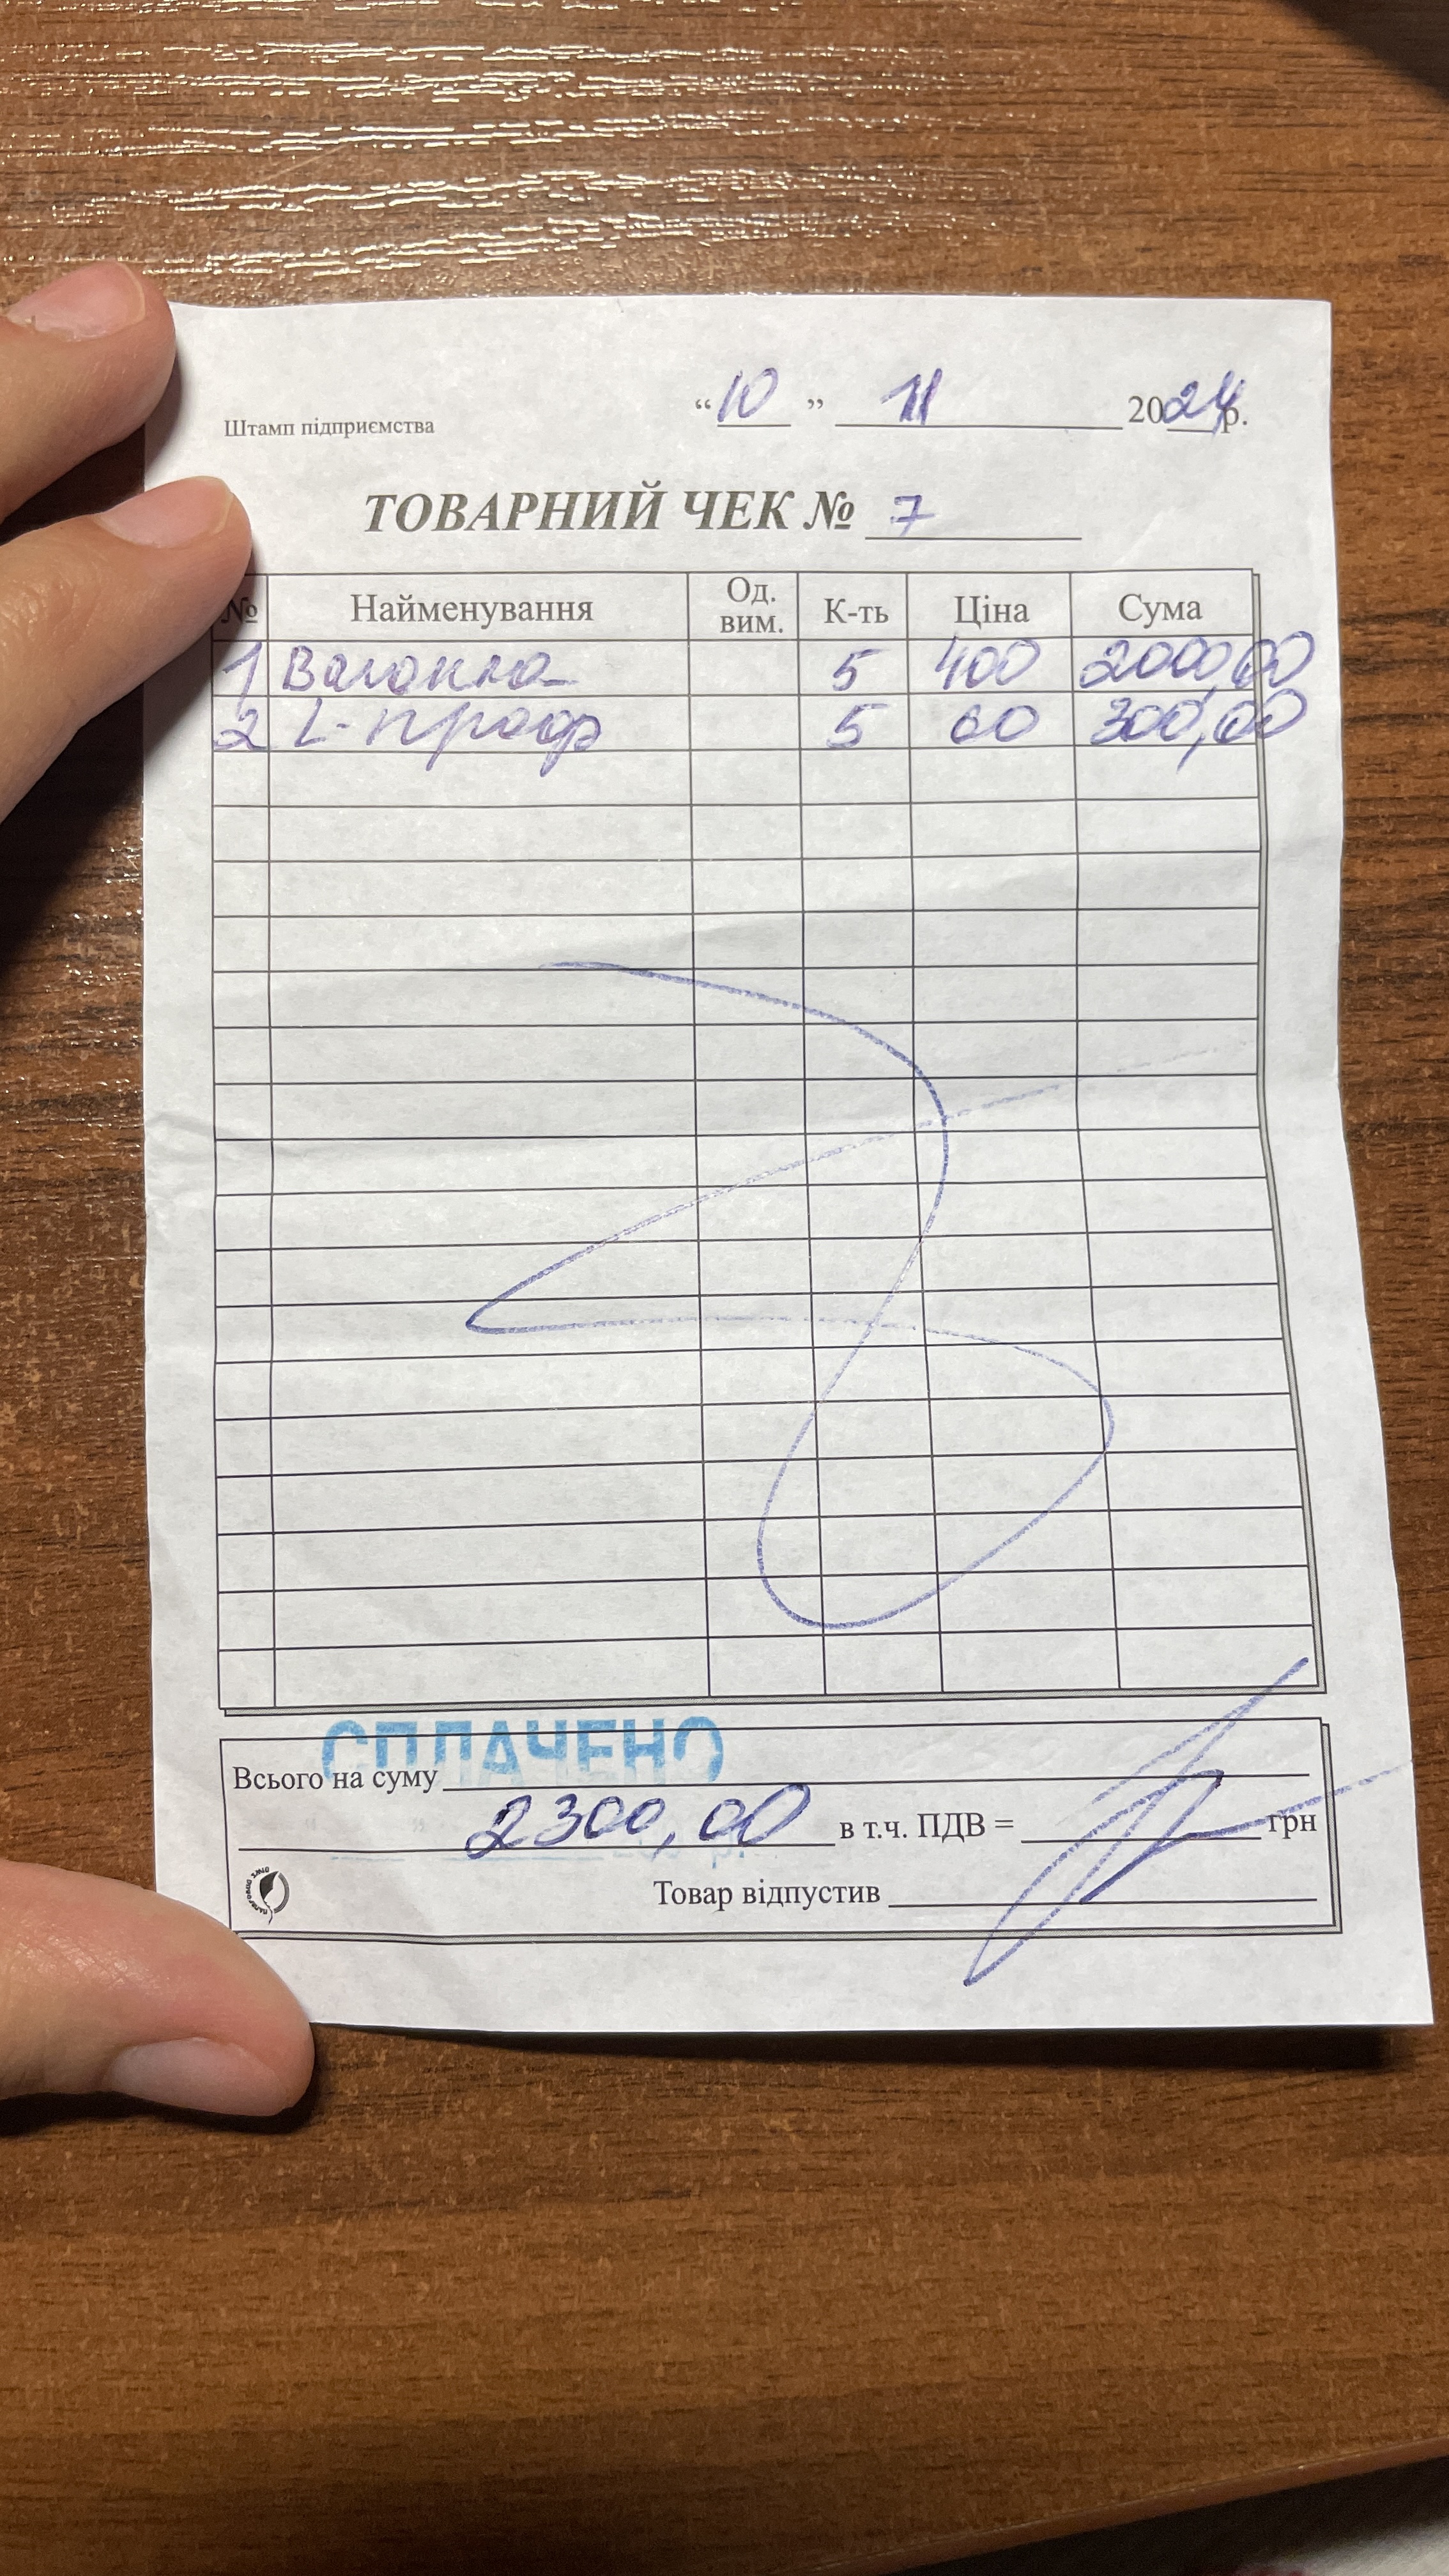 Штамп підприємства
“10” 11 2024р.
ТОВАРНИЙ ЧЕК № 7
№ Найменування Од. вим. К-ть Ціна Сума
1 Вагонка 5 400 2000,00
2 L-проф 5 60 300,00
СПЛАЧЕНО
Всього на суму
2300,00 в т.ч. ПДВ = грн
Товар відпустив